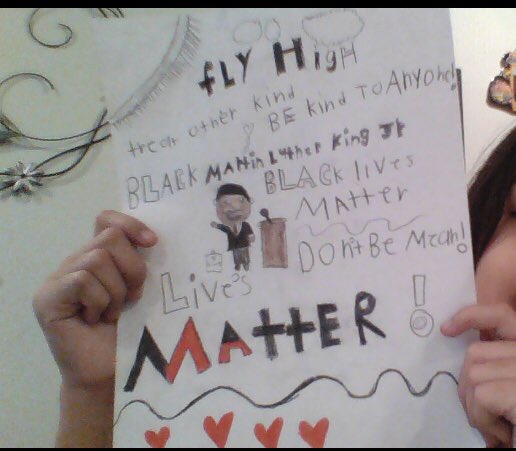 fLY HigH
treat other kind
BE kind To Anyone!
MArtin Luther King Jr
BLACK
BLACK lives
MAtter
Don't Be Mean!
Live's
MAttER !